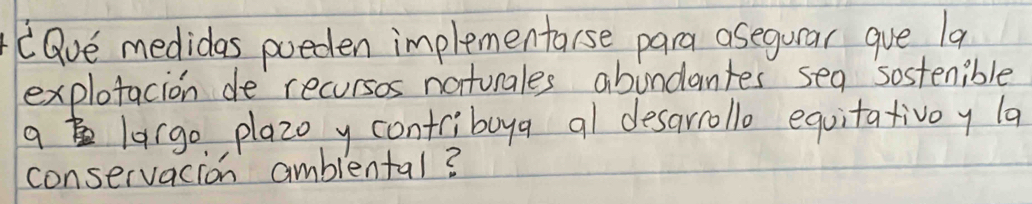 ¿Qué medidas pueden implementarse para asegurar que la
explotación de recursos naturales abundantes sea sostenible
a largo plazo y contribuya al desarrollo equitativo y la
conservación ambiental?